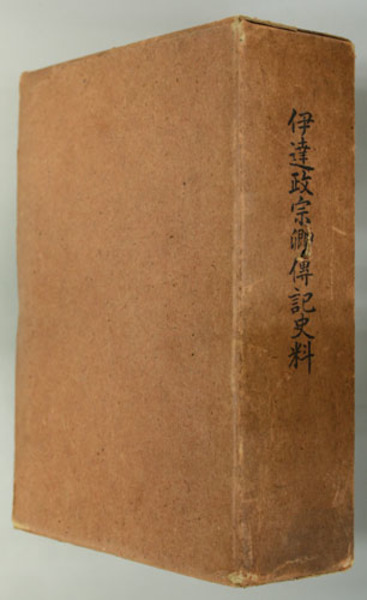 伊達政宗卿傳記史料